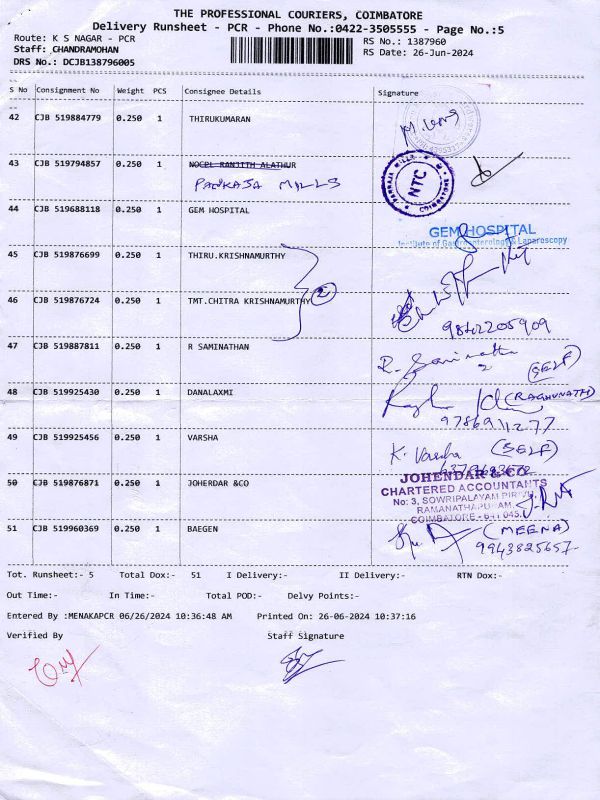 THE PROFESSIONAL COURIERS, COIMBATORE
Delivery Runsheet - PCR - Phone No.:0422-3505555 - Page No.:5
Route: K S NAGAR - PCR
RS No.: 1387960
Staff: CHANDRAMOHAN
RS Date: 26-Jun-2024
DRS No.: DCJB138796005
S No Consignment No Weight PCS Consignee Details Signature
42 CJB 519884779 0.250 1 THIRUKUMARAN
43 CJB 519794857 0.250 1 NOCEL RANJITH ALATHUR
PANKAJA MILLS
PANKAJA MILLS
NTC
COIMBATORE
44 CJB 519688118 0.250 1 GEM HOSPITAL
GEM HOSPITAL
Institute of Gastroenterology & Laparoscopy
45 CJB 519876699 0.250 1 THIRU.KRISHNAMURTHY
46 CJB 519876724 0.250 1 TMT.CHITRA KRISHNAMURTHY 2
9842205909
47 CJB 519887811 0.250 1 R SAMINATHAN
R. Saminathan
(SELF)
48 CJB 519925430 0.250 1 DANALAXMI
(RAGHUNATH)
9786911277
49 CJB 519925456 0.250 1 VARSHA
K. Varsha (SELF)
50 CJB 519876871 0.250 1 JOHERDAR &CO
JOHENDAR & CO
CHARTERED ACCOUNTANTS
No: 3, SOWRIPALAYAM PIRIVU,
RAMANATHAPURAM,
COIMBATORE - 641 045.
51 CJB 519960369 0.250 1 BAEGEN
(MEENA)
9943825657
Tot. Runsheet:- 5 Total Dox:- 51 I Delivery:- II Delivery:- RTN Dox:-
Out Time:- In Time:- Total POD:- Delvy Points:-
Entered By :MENAKAPCR 06/26/2024 10:36:48 AM Printed On: 26-06-2024 10:37:16
Verified By Staff Signature